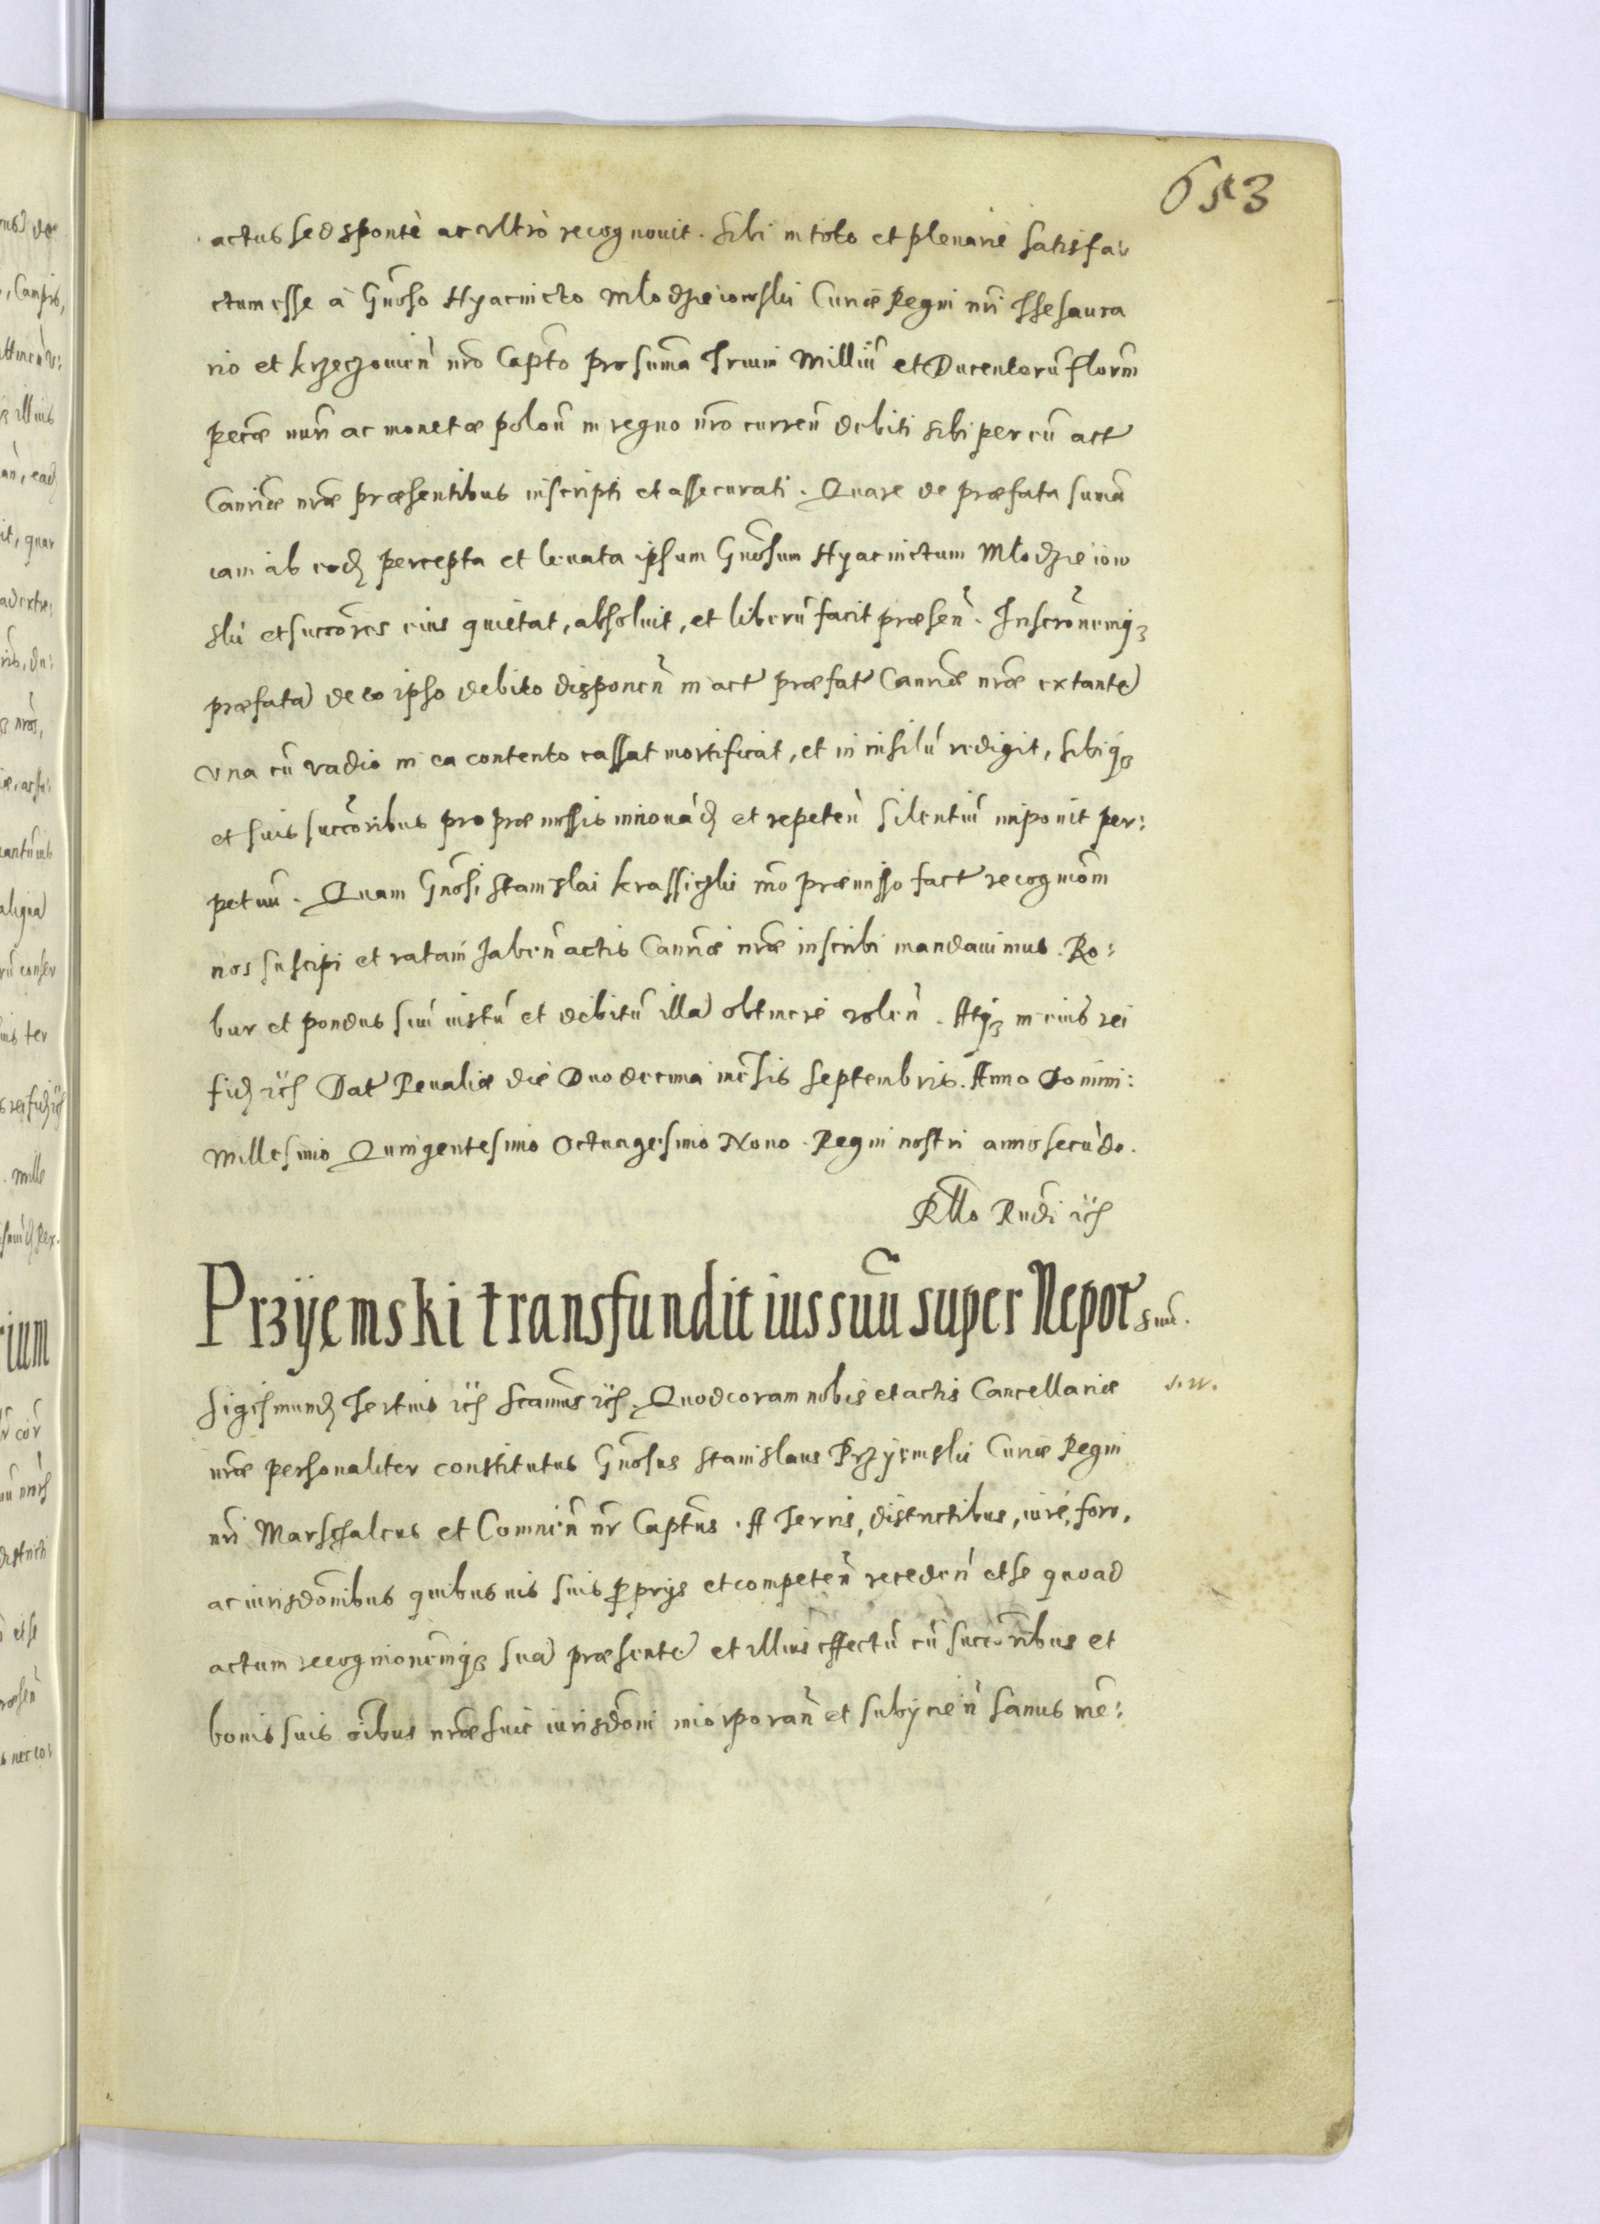 653
actus sed spontè ac vltrò recognouit. Sibi in toto et plenariè satisfa-
ctum esse à Gnoso Hyacincto Młodzieiowski Curiæ Regni nri Thesaura
rio et krzeczouien nro Capto pro suma Trium Milliu et Ducentoru floren
pecæ nuri ac monetæ polon in regno nro curren debiti sibi per eu act
Canriæ nræ præsentibus inscripti et assecurati. Quare de præfata suma
iam ab eod percepta et leuata ipsum Gnosum Hyacinctum Młodzieiow
ski et succores eius quietat, absoluit, et liberu facit præsen. Inscronemq3
præfata de eo ipso debito disponen in act præfat Canriæ nræ extante
vna cu vadio in ea contento cassat mortificat, et in nihilu redigit, sibiq3
et suis succoribus pro præmissis innouad et repeten silentiu imponit per:
petuu. Quam Gnosi Stanislai krassicki mo præmisso fact recogniom
nos suscipi et ratam haben actis Canriæ nræ inscribi mandauimus. Ro:
bur et pondus suu iustu et debitu illa obtinere volen. Atq3 in eius rei
fid etc Dat Reualiæ die Duodecima mensis Septembris. Anno Domini:
Millesimo Quingentesimo Octuagesimo Nono. Regni nostri anno secudo.
Rllo Rndi etc
Przÿemski transfundit ius suu super Nepotes suos.
Sigismund Tertius etc Scamus etc. Quod coram nobis et actis Cancellariæ
nræ personaliter constitutus Gnosus Stanislaus Przyiemski Curiæ Regni
nri Marschalcus et Comnien nr Captus. A Terris, districtibus, iure, foro,
ac iurisdonibus quibusuis suis pprijs et competen receden et se quoad
actum recognionemq3 sua præsente et illius effectu cu succoribus et
bonis suis oibus nræ huic iurisdoni incorporan et subijcien sanus me: